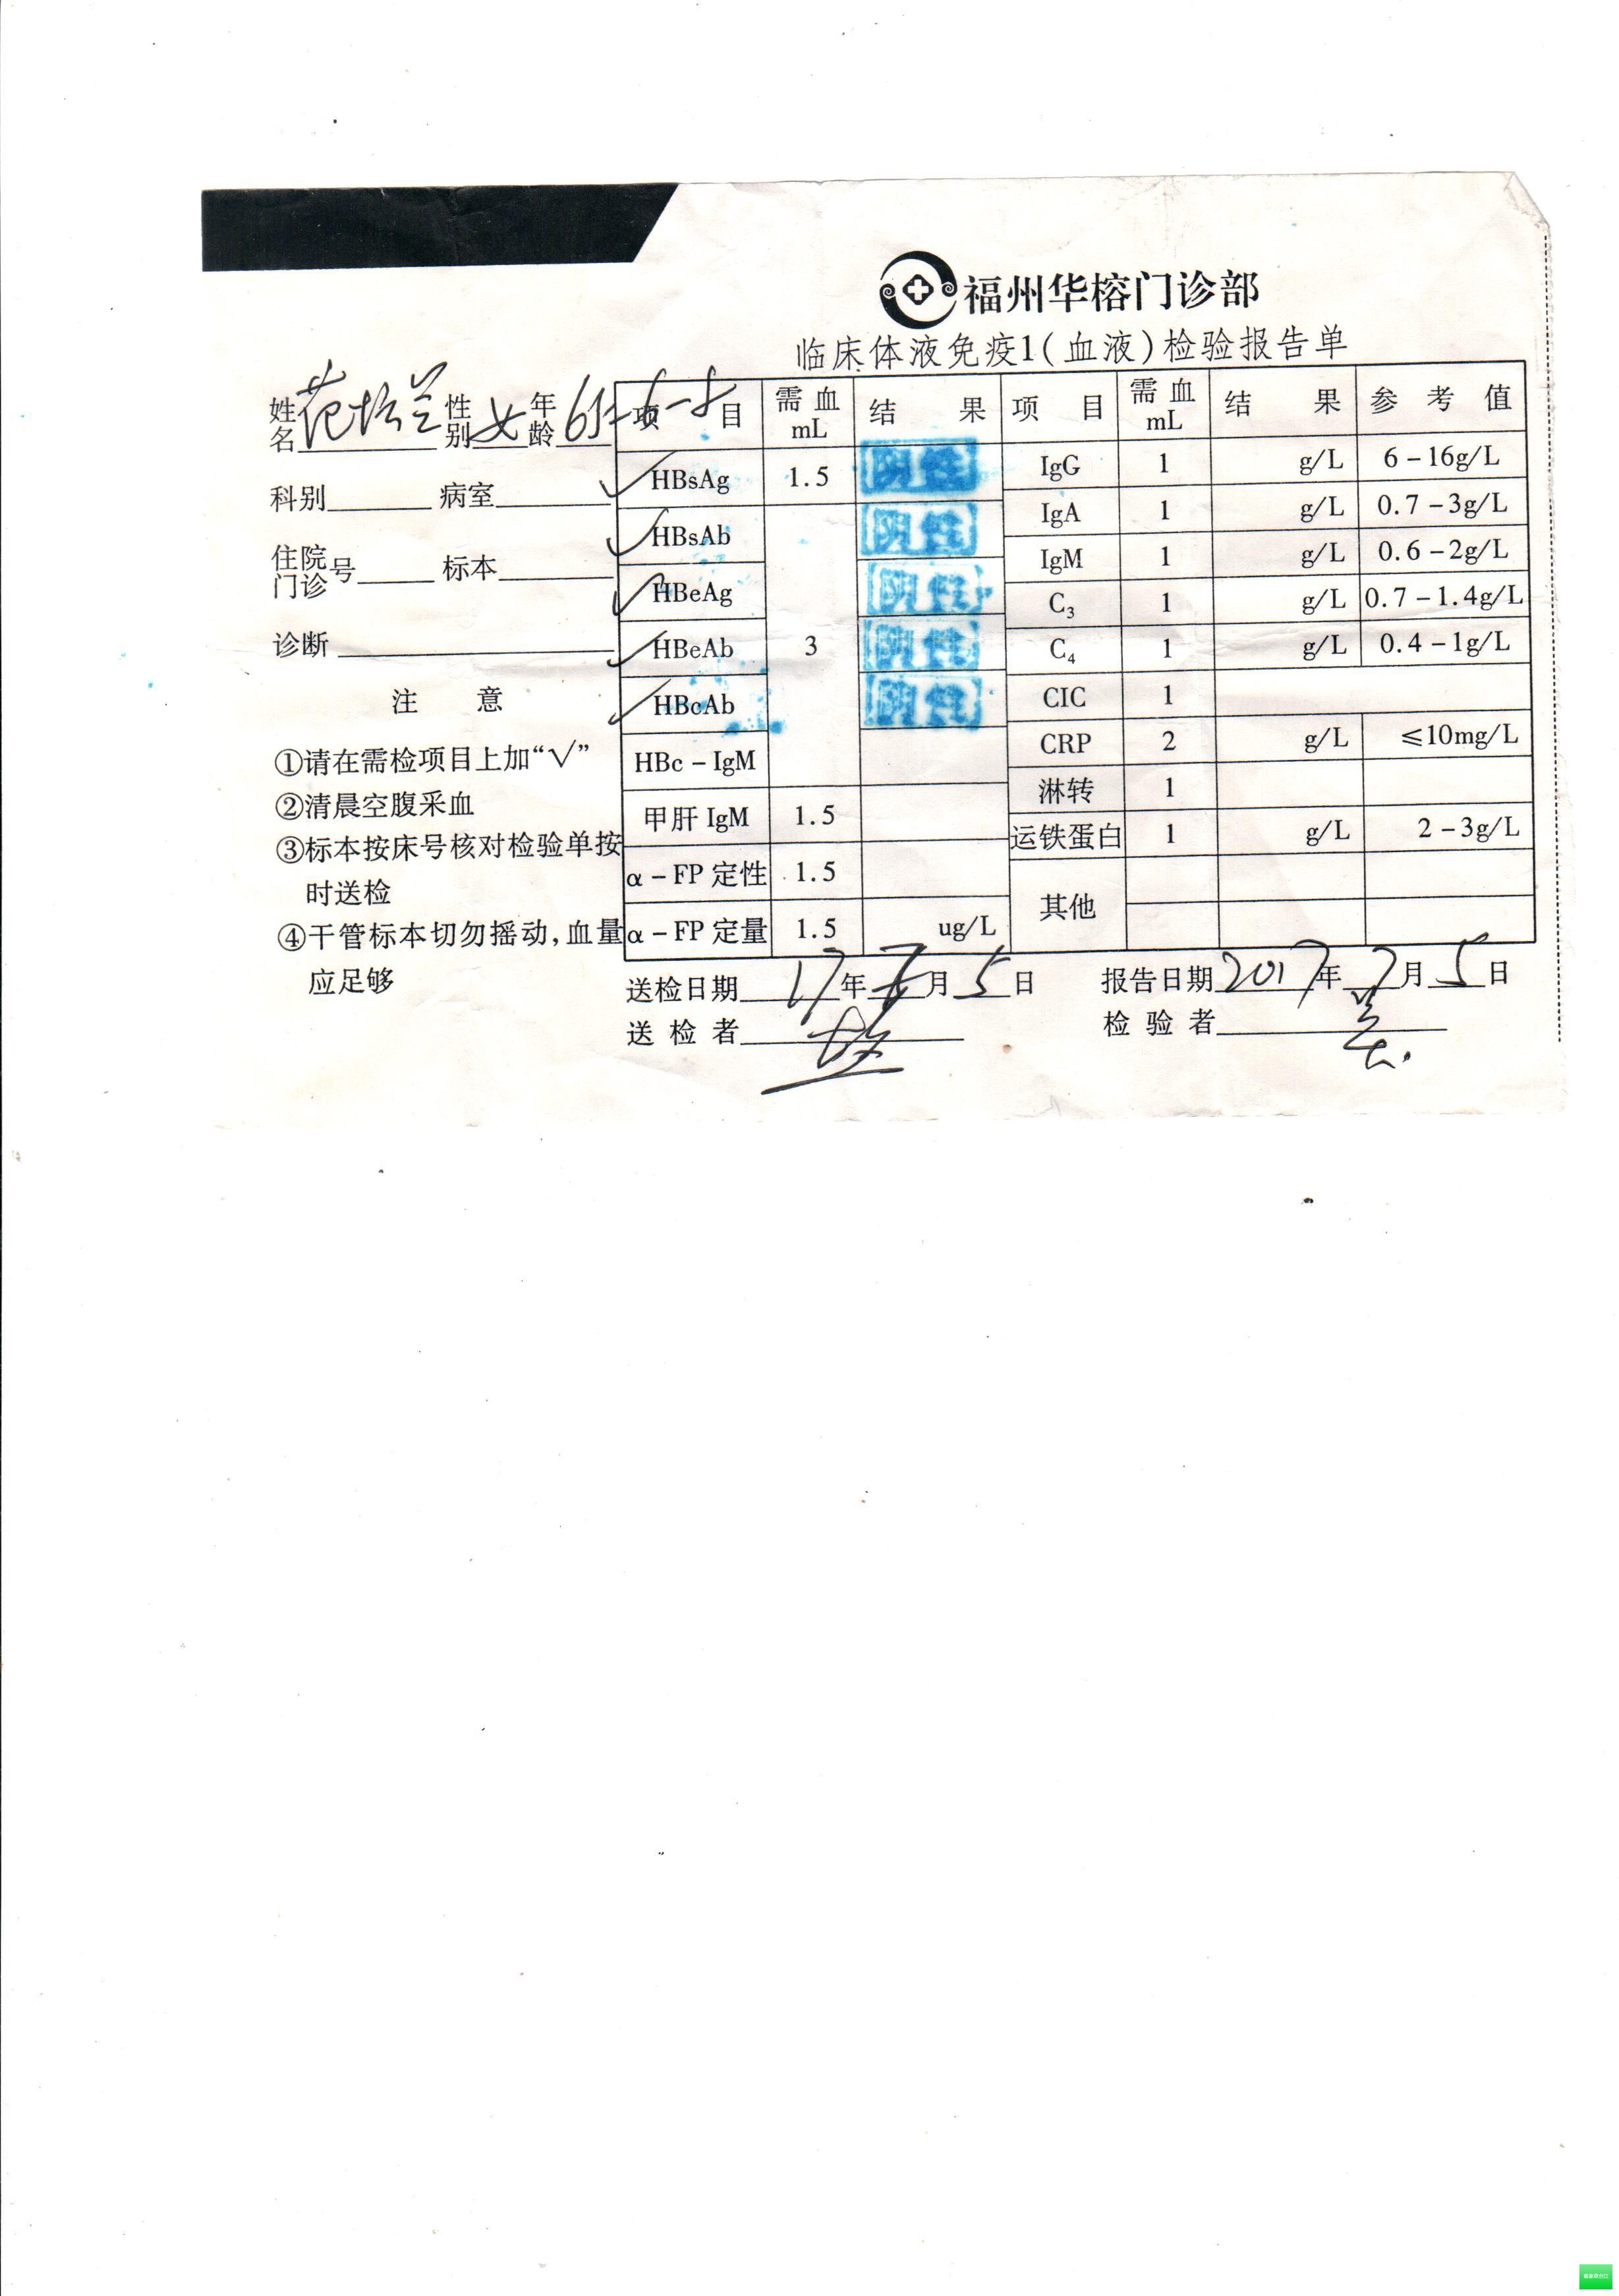 福州华榕门诊部
临床体液免疫1(血液)检验报告单
姓名 范 兰 性别 女 年龄 65-6-8
科别 病室
住院门诊号 标本
诊断
注 意
①请在需检项目上加“√”
②清晨空腹采血
③标本按床号核对检验单按
时送检
④干管标本切勿摇动,血量
应足够
项 目 需血 mL 结 果 项 目 需血 mL 结 果 参 考 值
√ HBsAg 1.5 阴性 IgG 1 g/L 6-16g/L
√ HBsAb 阴性 IgA 1 g/L 0.7-3g/L
√ HBeAg 阴性 IgM 1 g/L 0.6-2g/L
C3 1 g/L 0.7-1.4g/L
√ HBeAb 3 阴性 C4 1 g/L 0.4-1g/L
√ HBcAb 阴性 CIC 1
HBc-IgM CRP 2 g/L ≤10mg/L
淋转 1
甲肝 IgM 1.5 运铁蛋白 1 g/L 2-3g/L
α-FP 定性 1.5 其他
α-FP 定量 1.5 ug/L
送检日期 17年 月5日 报告日期 2017年7月5日
送 检 者 检 验 者